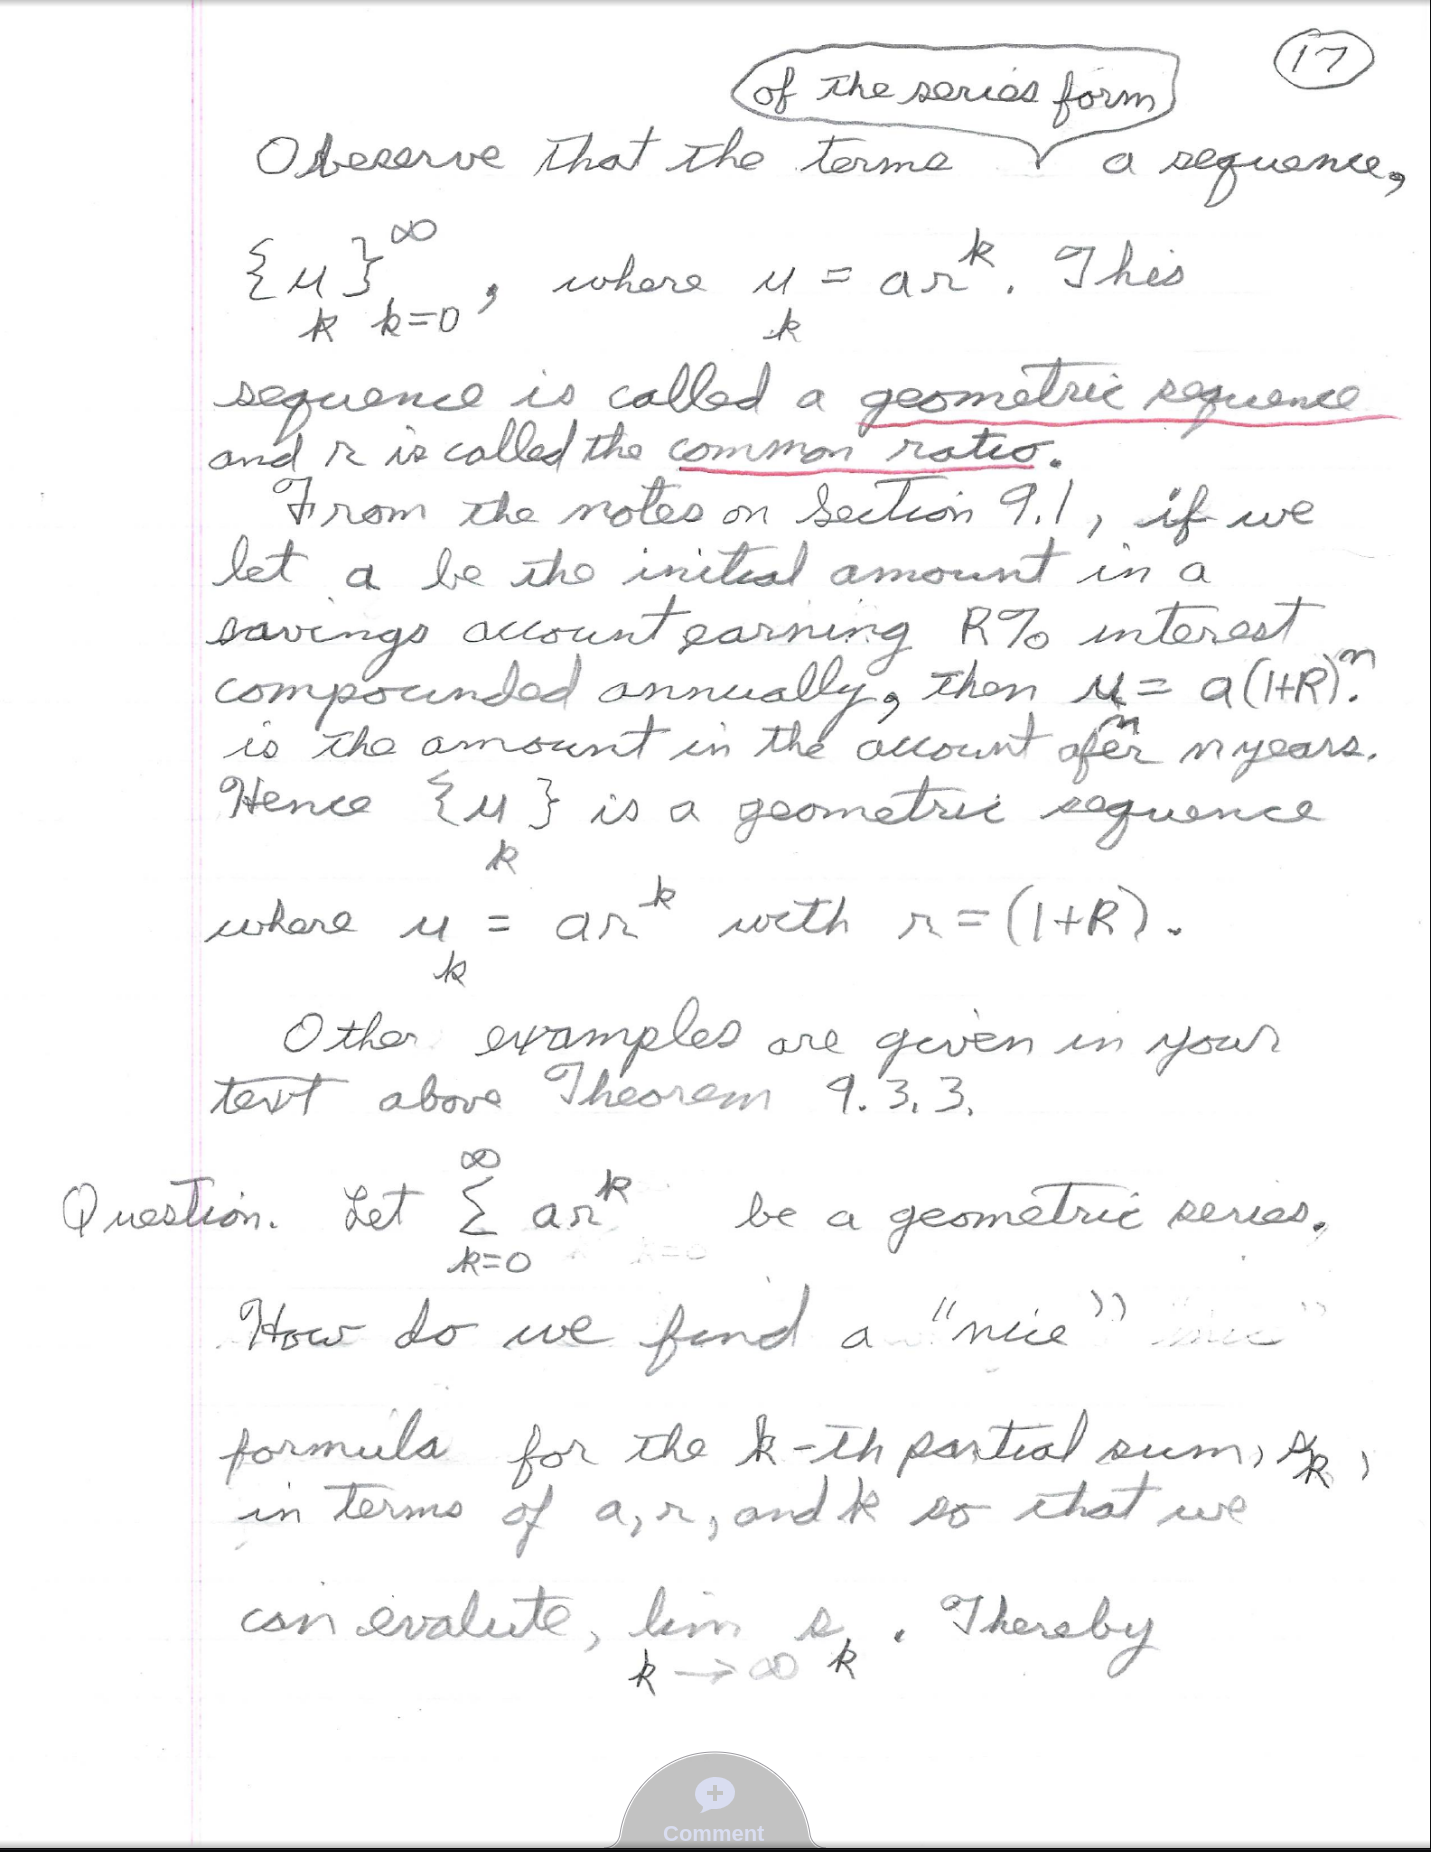 17
of the series form
Observe that the terms a sequence,
{u_k}_{k=0}^∞, where u_k = ar^k. This
sequence is called a geometric sequence
and r is called the common ratio.
From the notes on Section 9.1, if we
let a be the initial amount in a
savings account earning R% interest
compounded annually, then u_n = a(1+R)^n.
is the amount in the account afer n years.
Hence {u_k} is a geometric sequence
where u_k = ar^k with r = (1+R).
Other examples are given in your
text above Theorem 9.3.3.
Question. Let ∑_{k=0}^∞ ar^k be a geometric series.
How do we find a "nice"
formula for the k-th partial sum, s_k,
in terms of a, r, and k so that we
can evalute, lim_{k→∞} s_k. Thereby
Comment